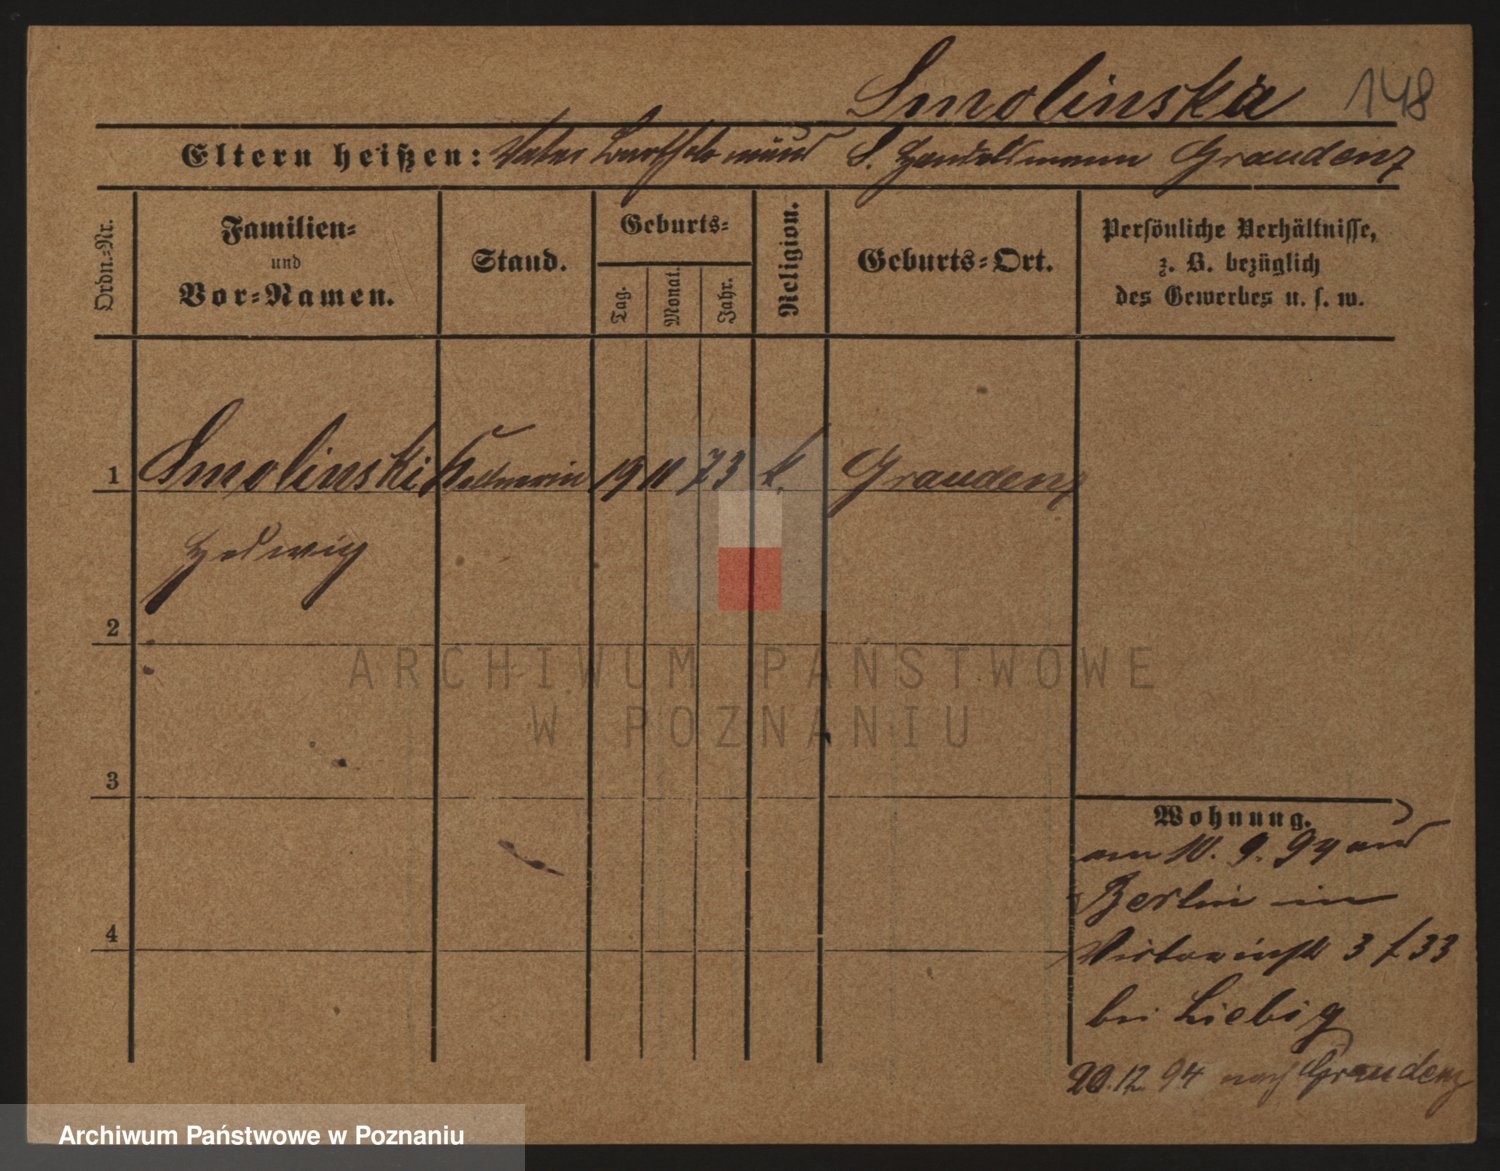 Smolinska 148
Eltern heißen: Vater S. Handelsmann Graudenz
Ordn.-Nr.
Familien-
und
Vor-Namen.
Stand.
Geburts-
Tag.
Monat.
Jahr.
Religion.
Geburts-Ort.
Persönliche Verhältnisse,
z. B. bezüglich
des Gewerbes u. s. w.
1 Smolinski Kellnerin 19 11 73 k. Graudenz
Hedwig
2
ARCHIWUM PAŃSTWOWE
W POZNANIU
3
Wohnung.
am 10. 9. 94 aus
Berlin in
Victoriastr 3 f 33
bei Liebig
4
20.12.94 nach Graudenz
Archiwum Państwowe w Poznaniu